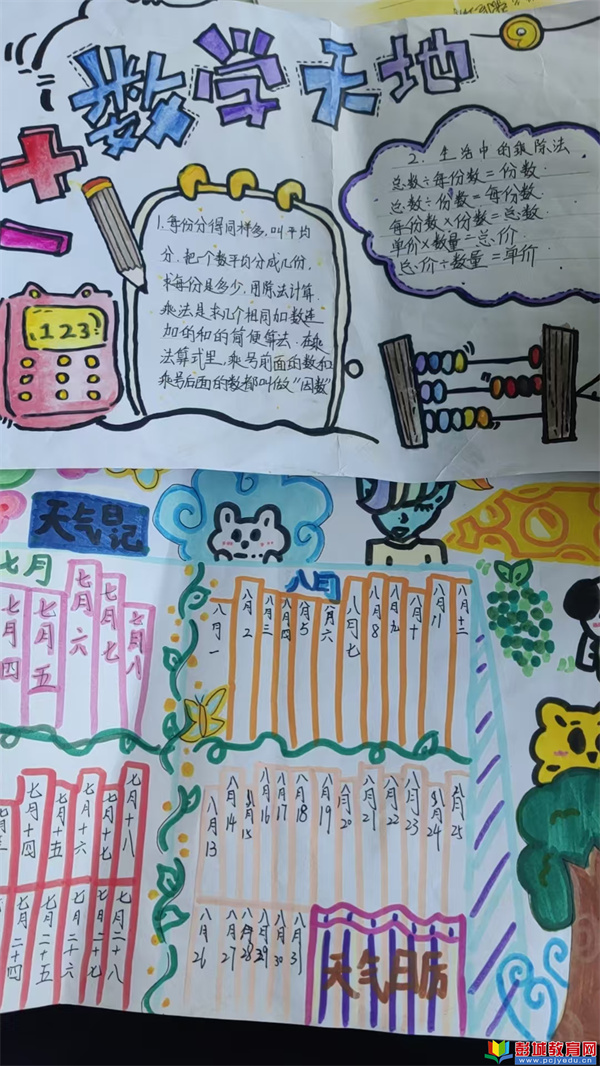 数学天地
1.每份分得同样多,叫平均
分,把一个数平均分成几份,
求每份是多少,用除法计算.
乘法是求几个相同加数连
加的和的简便算法.在乘
法算式里,乘号前面的数和
乘号后面的数都叫做“因数”
2.生活中的乘除法
总数÷每份数=份数.
总数÷份数=每份数.
每份数×份数=总数.
单价×数量=总价.
总价÷数量=单价
123
天气日记
七月
七月四
七月五
七月六
七月七
七月八
八月
八月一
八月2
八月三
八月四
八月六
八月七
八月8
八月九
八月十
八月11
八月十二
七月十四
七月十五
七月十六
七月十七
七月十八
八月13
八月14
八月15
八月16
八月17
八月18
八月19
八月20
八月21
八月22
八月23
八月24
八月25
七月二十四
七月二十五
七月二十六
七月二十七
七月二十八
八月26
八月27
八月28
八月29
八月30
八月31
天气日历
彭城教育网
www.pcjyedu.cn